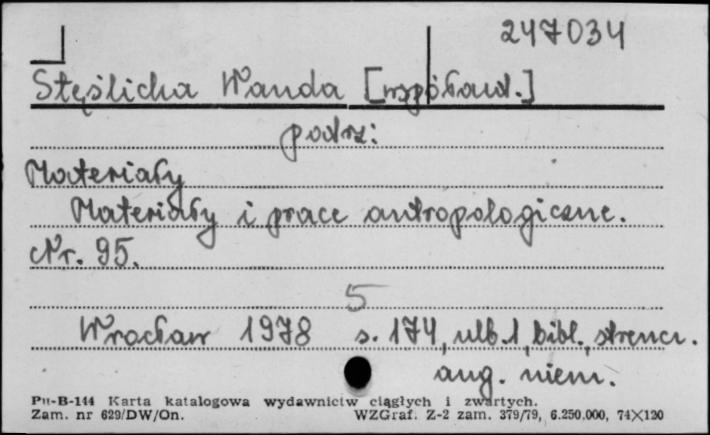 247034
Stęślicka Wanda [współaut.]
podrz:
Materiały
Materiały i prace antropologiczne.
Nr. 95.
5
Wrocław 1978 s. 174, nlb. 1, bibl., streszcz.
ang. niem.
Pu-B-144 Karta katalogowa wydawnictw ciągłych i zwartych.
Zam. nr 629/DW/On. WZGraf. Z-2 zam. 379/79, 6.250.000, 74×120